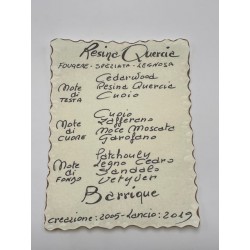 Resina Quercia
FOUGERE - SPEZIATA - LEGNOSA
Note di TESTA
Cedarwood
Resina Quercia
Cuoio
Note di CUORE
Cuoio
Zafferano
Noce Moscata
Garofano
Note di FONDO
Patchouly
Legno Cedro
Sandalo
Vetyver
Barrique
creazione: 2005 - Lancio: 2019